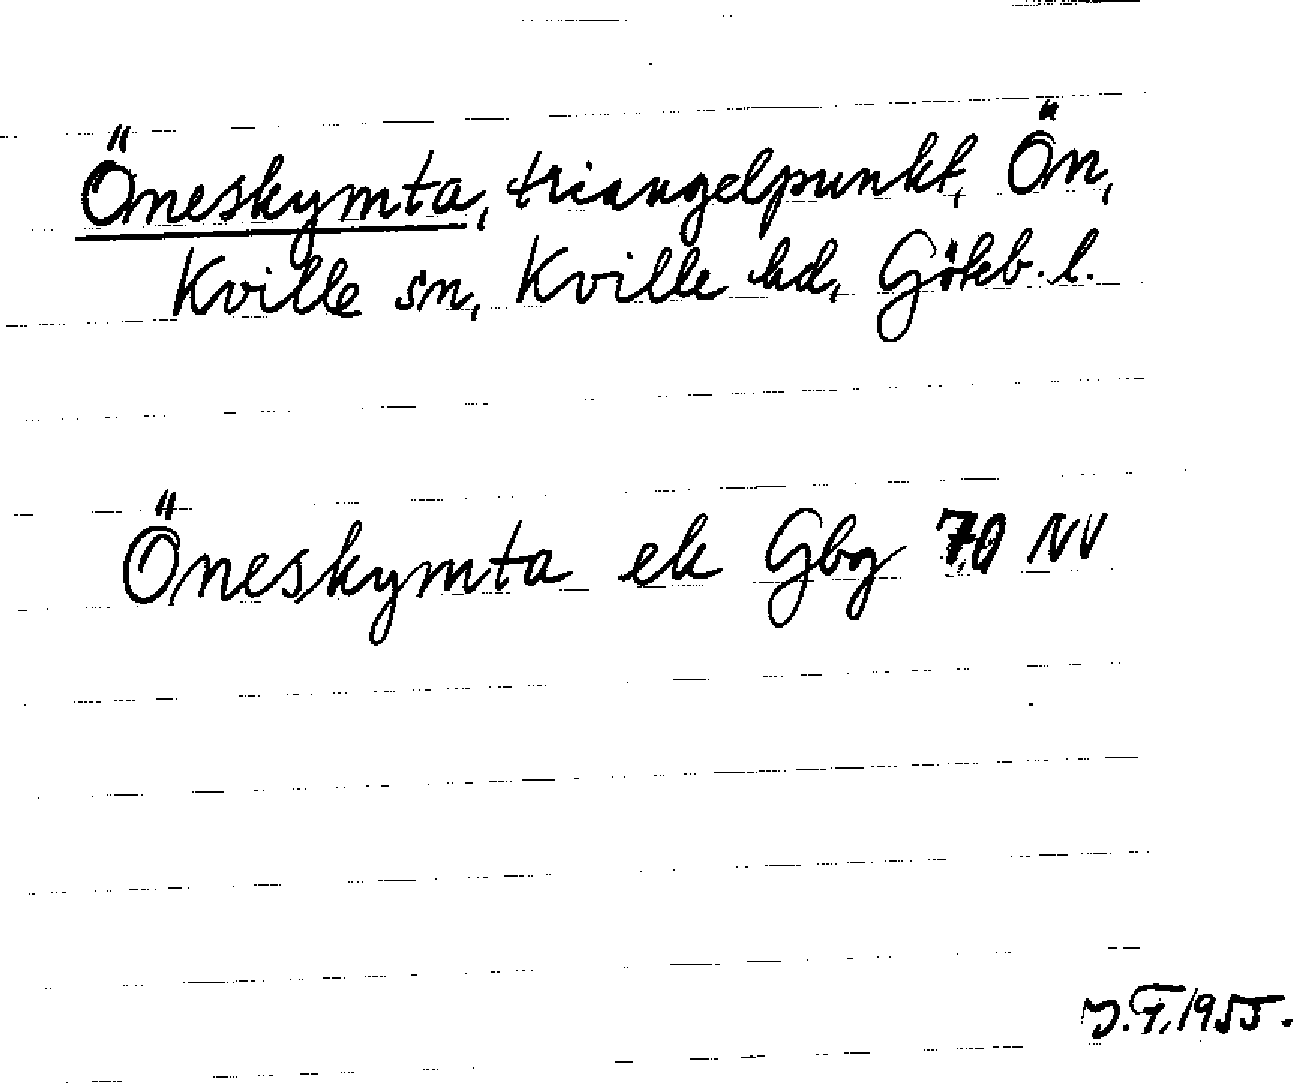 Öneskymta, triangelpunkt, Ön,
Kville sn, Kville hd, Göteb. l.
Öneskymta ek Gbg 70 NV
J.F. 1955.